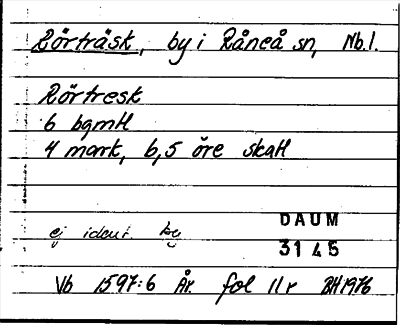 Rörträsk, by i Råneå sn, Nb.l.
Rörtresk
6 bgmtl
4 mark, 6,5 öre skatt
ej ident. by
DAUM
3145
Vb 1597:6 År. fol 11r BH1976